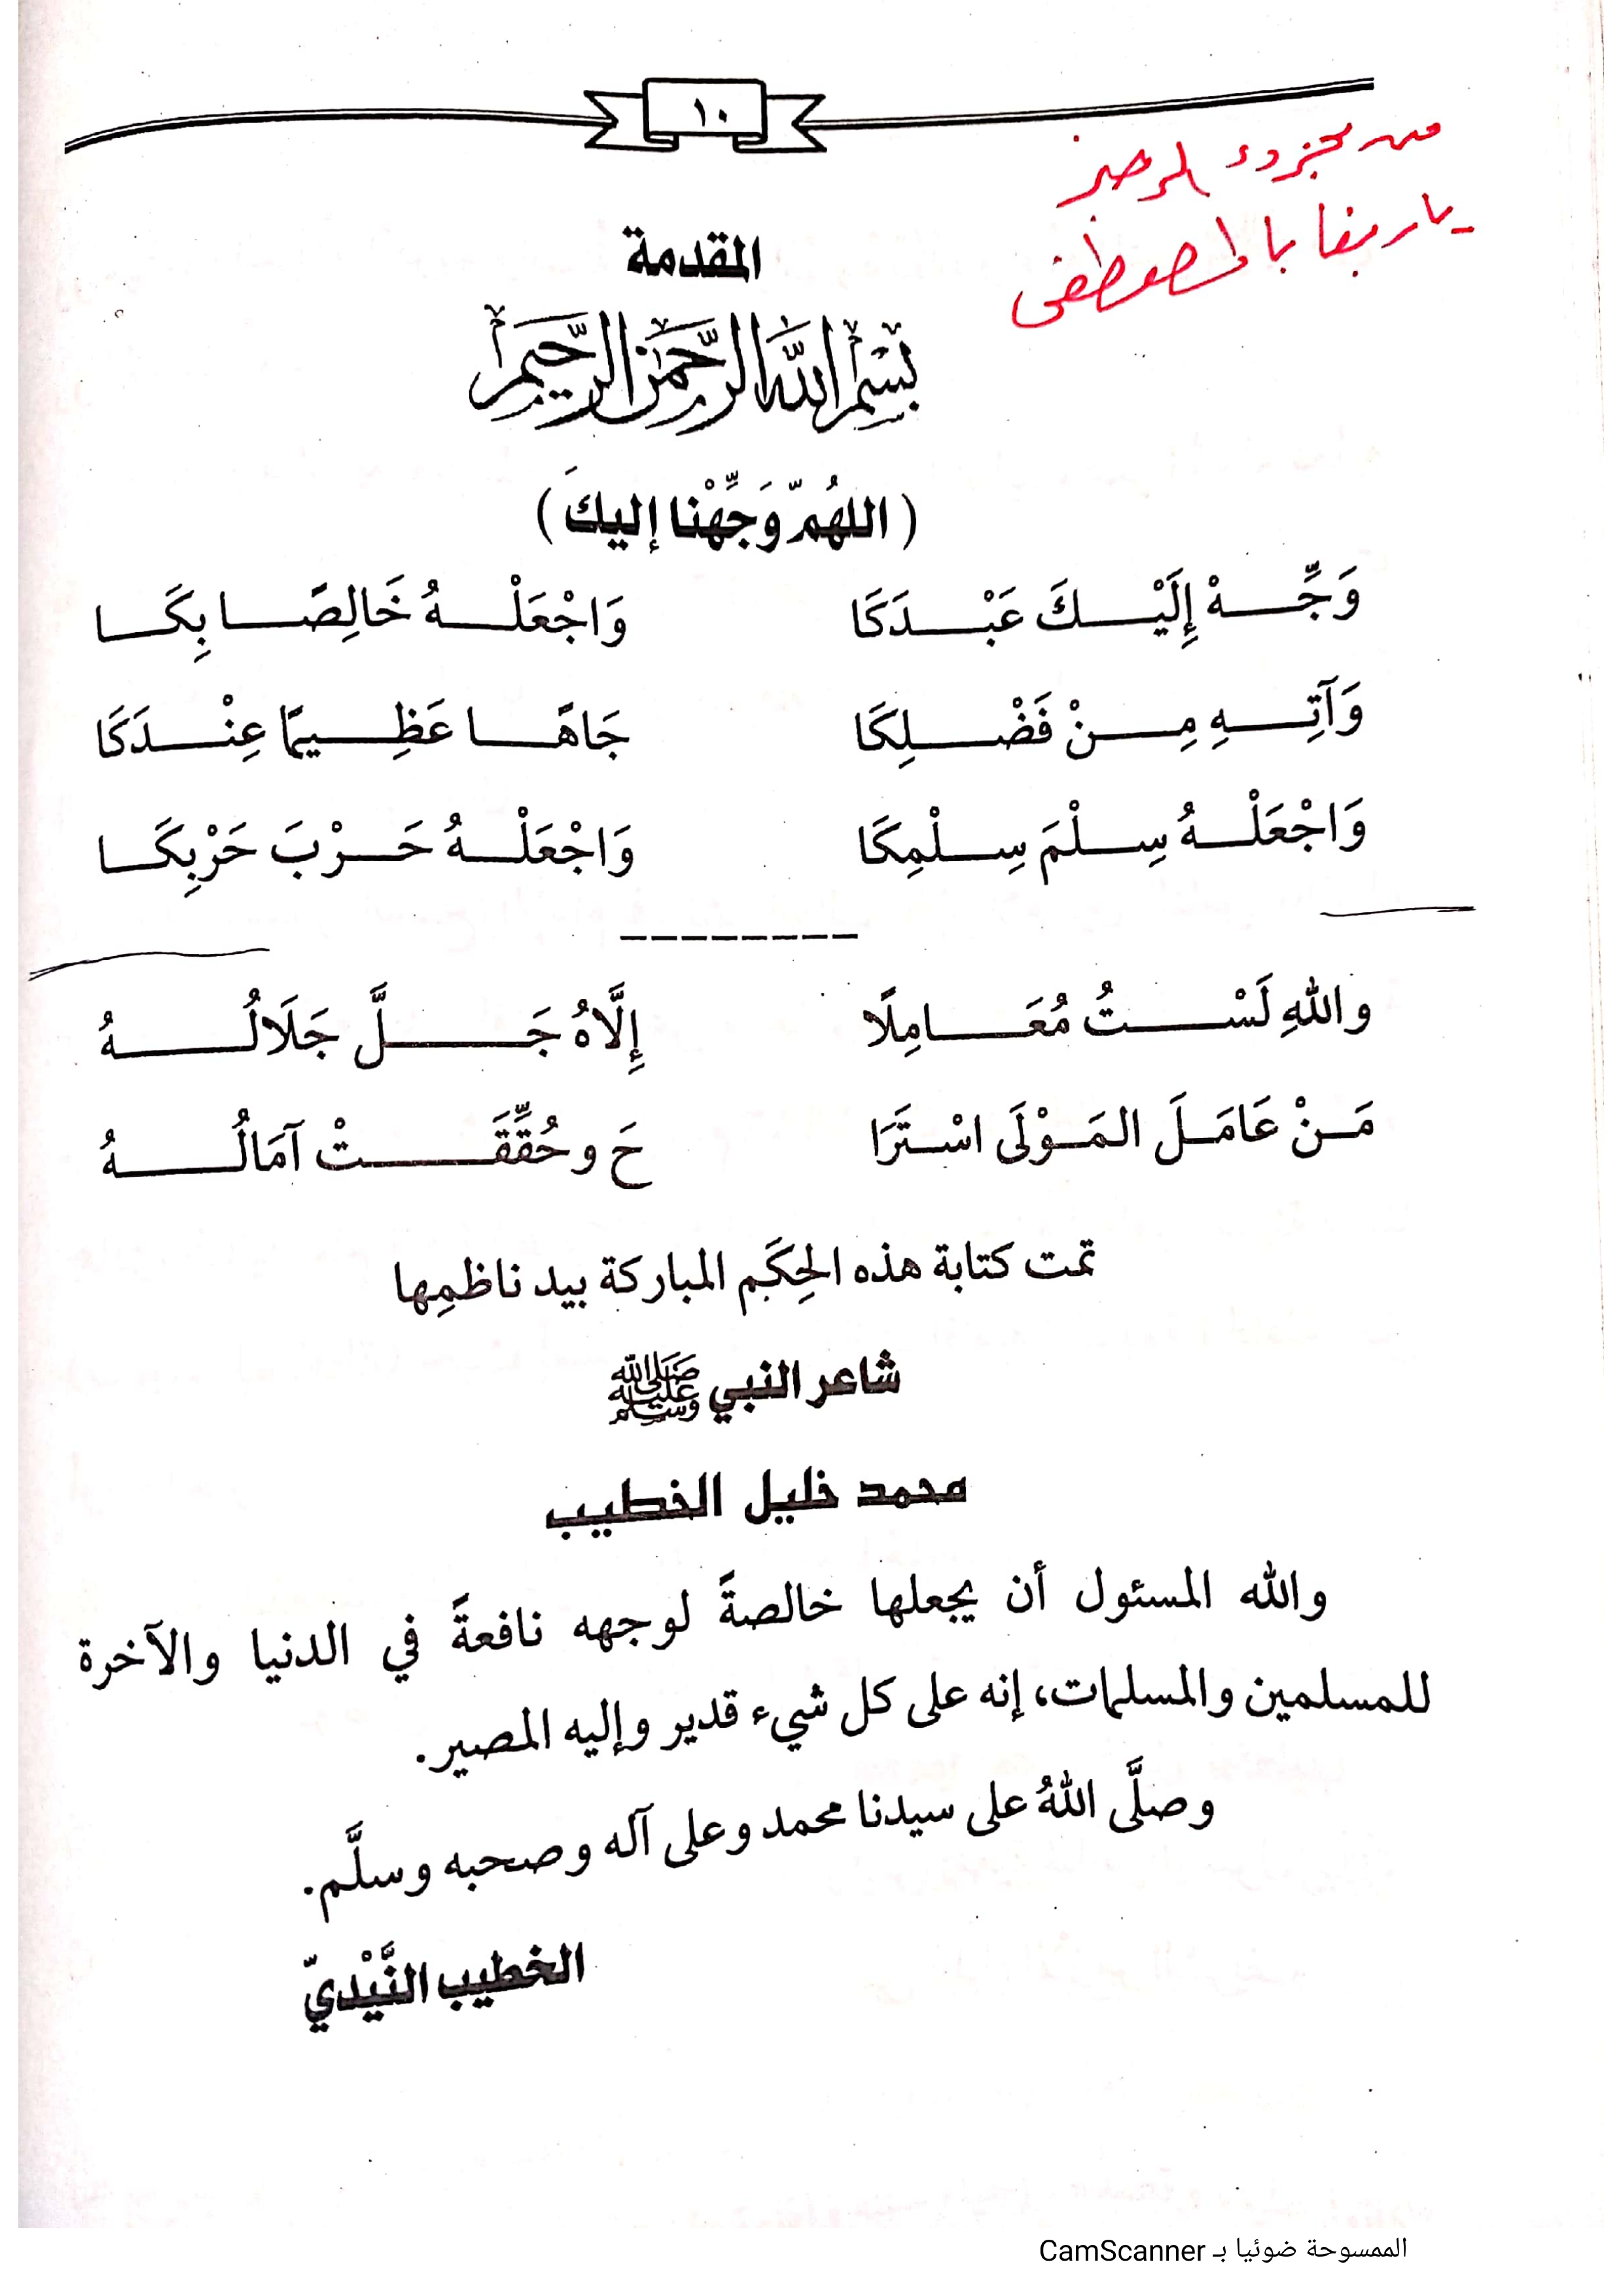 ١٠
من مجزوء الرجز
يا ربنا بالمصطفى
المقدمة
بِسْمِ اللَّهِ الرَّحْمَنِ الرَّحِيمِ
(اللهُمّ وَجِّهْنا إليكَ)
وَجِّهْ إِلَيْكَ عَبْدَكَا وَاجْعَلْهُ خَالِصًا بِكَا
وَآتِهِ مِنْ فَضْلِكَا جَاهًا عَظِيمًا عِنْدَكَا
وَاجْعَلْهُ سِلْمَ سِلْمِكَا وَاجْعَلْهُ حَرْبَ حَرْبِكَا
--------
واللهِ لَسْتُ مُعَامِلًا إِلَّاهُ جَلَّ جَلَالُهُ
مَنْ عَامَلَ المَوْلَى اسْتَرَا حَ وحُقِّقَتْ آمَالُهُ
تمت كتابة هذه الحِكَم المباركة بيد ناظمِها
شاعر النبي ﷺ
محمد خليل الخطيب
والله المسئول أن يجعلها خالصةً لوجهه نافعةً في الدنيا والآخرة
للمسلمين والمسلمات، إنه على كل شيء قدير وإليه المصير.
وصلَّى اللهُ على سيدنا محمد وعلى آله وصحبه وسلَّم.
الخطيب النَّيْديّ
الممسوحة ضوئيا بـ CamScanner